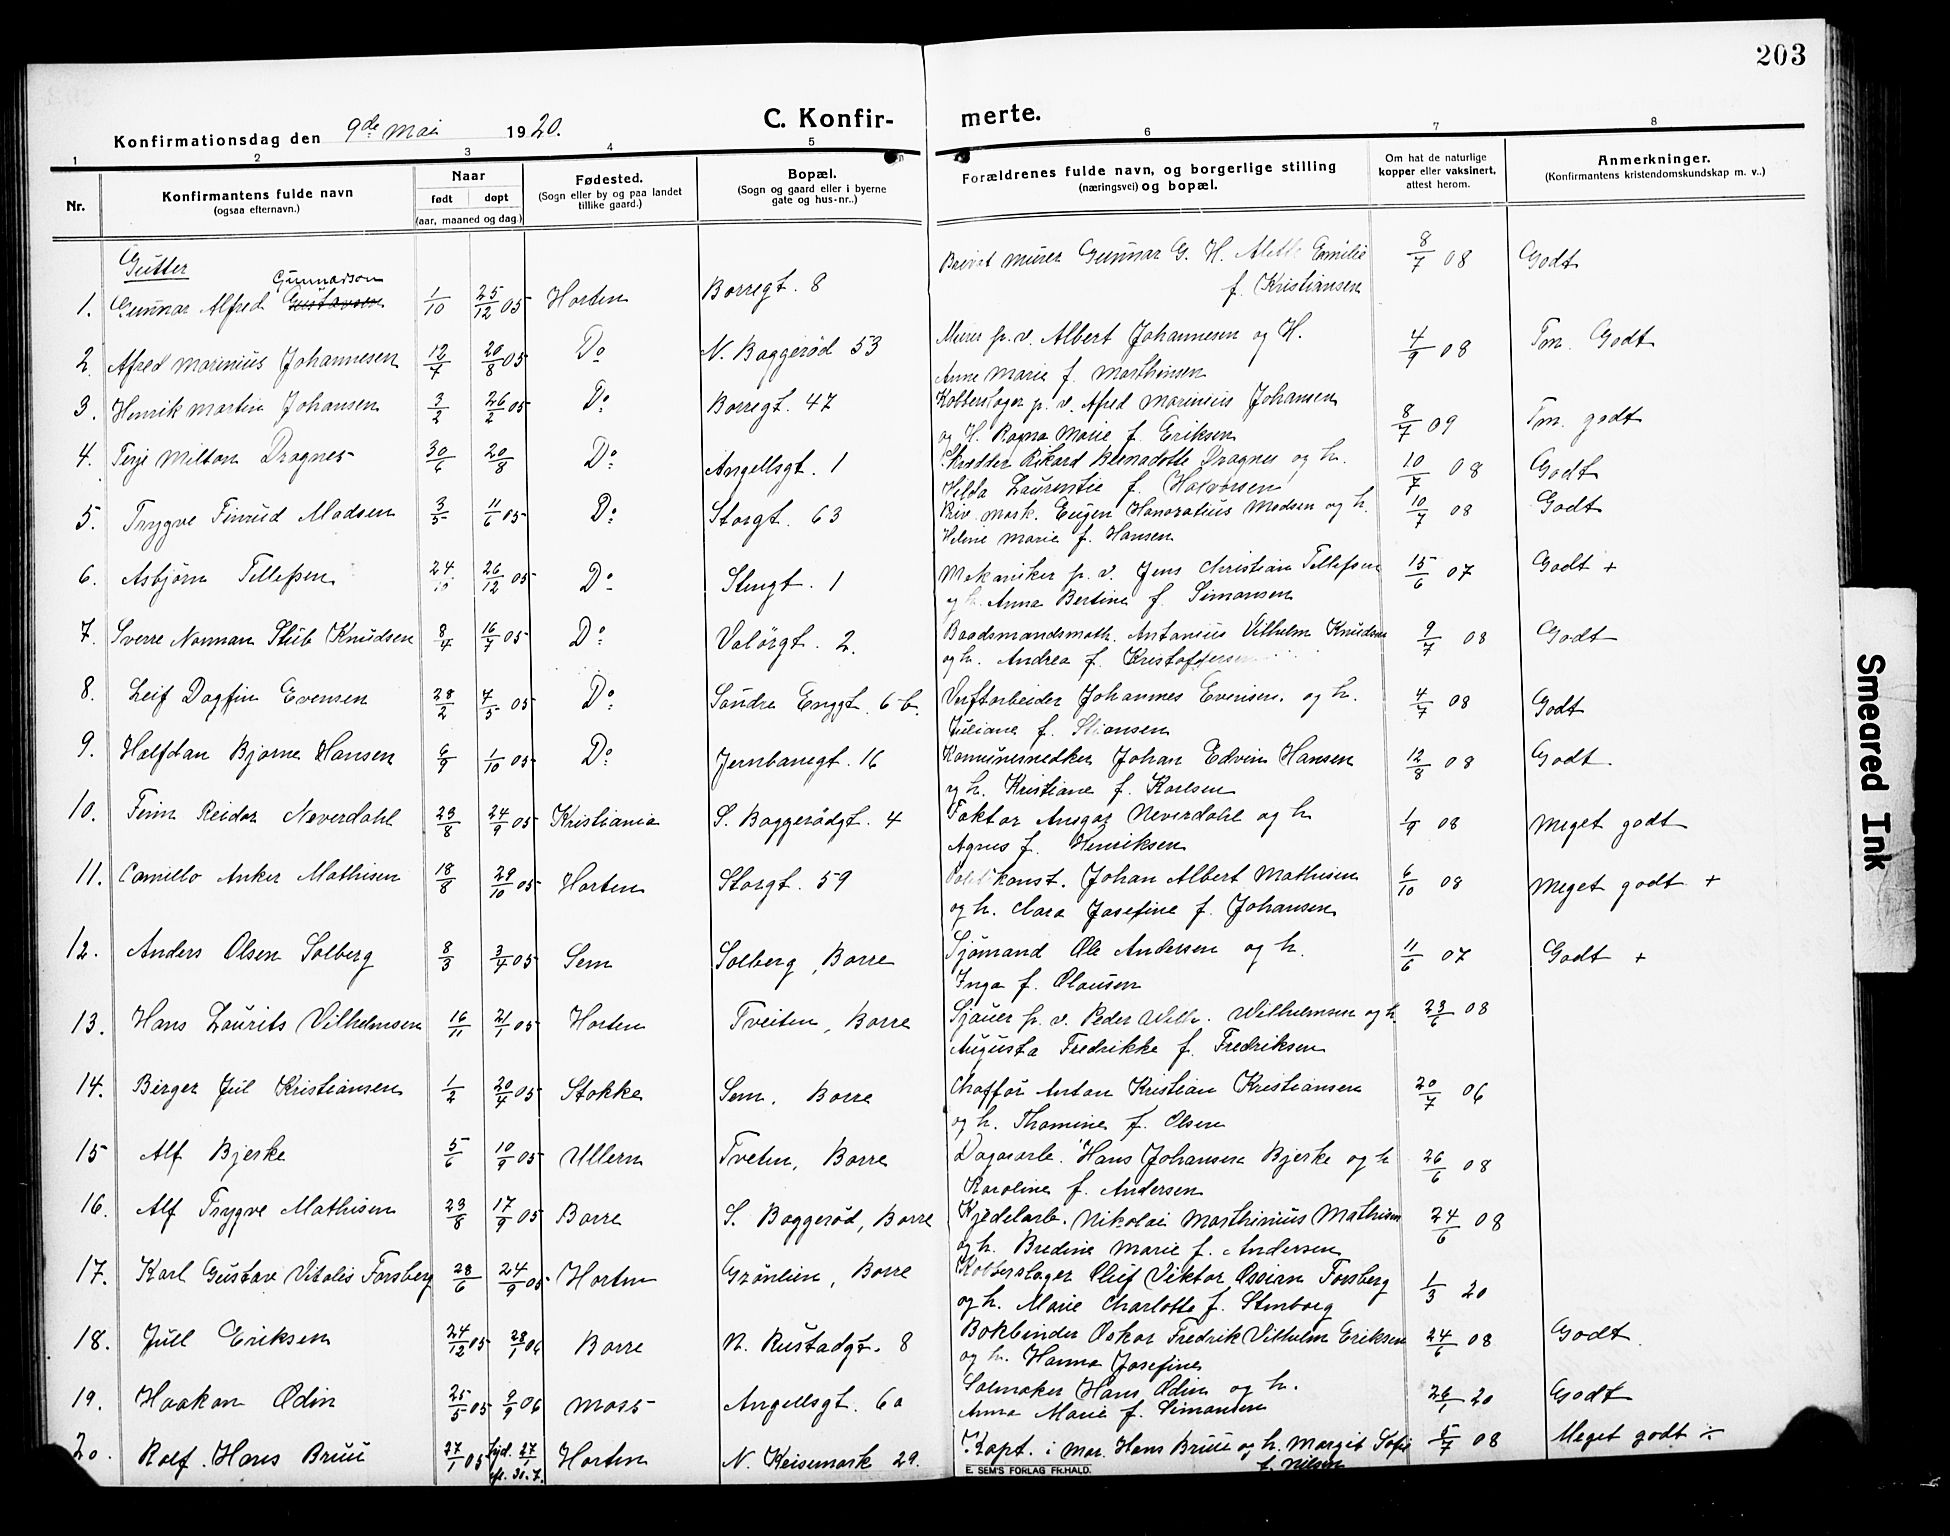 203
Konfirmationsdag den 9de mai 1920.
C. Konfirmerte.
1 2 3 4 5 6 7 8
Nr.
Konfirmantens fulde navn
(ogsaa efternavn.)
Naar
født døpt
(aar, maaned og dag.)
Fødested.
(Sogn eller by og paa landet
tillike gaard.)
Bopæl.
(Sogn og gaard eller i byerne
gate og hus-nr..)
Forældrenes fulde navn, og borgerlige stilling
(næringsvei) og bopæl.
Om hat de naturlige
kopper eller vaksinert,
attest herom.
Anmerkninger.
(Konfirmantens kristendomskundskap m. v..)
Gutter
Gunnarson
1. Gunnar Alfred Gustavsen 1/10 25/12 05 Horten Borregt. 8 murer Gunnar G. H. Emilie 8/7 08 Godt
f. Kristiansen
2. Afred Marinius Johannesen 12/7 20/8 05 Do N. Baggerød 53 Murer p. v. Albert Johannesen og H. 4/9 08 Tm. Godt
Anne Marie f. Marthinsen
3. Henrik Martin Johansen 3/2 26/2 05 Do Borregt. 47 Kobberslager p. v. Afred Marinius Johansen 8/7 09 Tm. godt
og H. Ragna Marie f. Eriksen
4. Terje Milton Dragnes 30/6 20/8 Do Angellsgt. 1 Skredder Rikard Dragnes og h. 10/7 08 Godt
Hilda Laurentie f. Halvorsen
5. Trygve Finrud Madsen 3/5 11/6 05 Do Storgt. 63 Riv. mask. Eugen Honoratius Madsen og h. 10/7 08 Godt
Helene Marie f. Hansen
6. Asbjørn Tellefsen 24/10 26/12 05 Do Stengt. 1 Mekaniker p. v. Jens Christian Tellefsen 15/6 07 Godt +
og h. Anna Bertine f. Simonsen
7. Sverre Norman Stub Knudsen 8/4 16/7 05 Do Valörgt. 2. Baadsmandsmath. Antonius Vilhelm Knudsen 9/7 08 Godt
og h. Andrea f. Kristoffersen
8. Leif Dagfin Evensen 28/2 7/5 05 Do Söndre Enggt. 6 b. Verftarbeider Johannes Evensen og h. 4/7 08 Godt
Juliane f. Stiansen
9. Halfdan Bjarne Hansen 6/9 1/10 05 Do Jernbanegt. 16 Johan Edvin Hansen 12/8 08 Godt.
og h. Kristiane f. Karlsen
10. Finn Reidar Neverdahl 23/8 24/9 05 Kristiania S. Baggerödgt. 4 Faktor Ansgar Neverdahl og h 1/9 08 Meget godt
Agnes f. Henriksen
11. Camillo Anker Mathisen 18/8 29/10 05 Horten Storgt. 59 Politikonst. Johan Albert Mathisen 6/10 08 Meget godt +
og h. Clara Josefine f. Johansen
12. Anders Olsen Solberg 8/3 3/4 05 Sem Solberg, Borre Sjömand Ole Andersen og h. 11/6 07 Godt +
Inga f. Olausen
13. Hans Laurits Vilhelmsen 16/11 21/1 05 Horten Tveiten, Borre Sjauer p. v. Peder Wilh. Wilhelmsen og h. 23/6 08
Augusta Fredrikke f. Fredriksen
14. Birger Juil Kristiansen 1/2 20/4 05 Stokke Sem, Borre Chafför Anton Kristian Kristiansen 20/7 06
og h. Thomine f. Olsen
15 Alf Bjerke 5/6 10/9 05 Ullern Tveten, Borre Dagarb. Hans Johansen Bjerke og h 26/6 08
Karoline f. Andersen
16. Alf Trygve Mathisen 23/8 17/9 05 Borre S. Baggerød, Borre Kjedelarb. Nikolai Marthinius Mathisen 24/6 08
og h. Bredine Marie f. Andersen
17. Karl Gustav Vitalis Forsberg 28/6 24/9 05 Horten Grönlien, Borre Kobberslager Oluf Viktor Forsberg 1/3 20
og h. Marie Charlotte f. Stenborg
18. Jull Eriksen 24/12 05 28/1 06 Borre N. Rustadgt. 8 Bokbinder Oskar Fredrik Vilhelm Eriksen 24/6 08 Godt.
og h. Hanna Josefine
19. Haakon Ødin 25/5 05 9/9 06 Moss Angellsgt. 6 a Salmaker Hans Ødin og h. 26/1 20 Godt
Anna Marie f. Simonsen
20. Rolf Hans Bruu 27/1 05 hjd. 27/1 Horten N. Keisemark 29. Kapt. i Mar. Hans Bruu og h. Margit Sofie 5/7 08 Meget godt
f. Nilsen
E. SEM'S FORLAG FR.HALD.
Smeared Ink